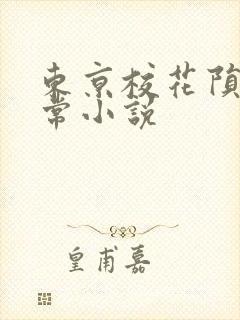 東京校花隕
常小説
皇甫嘉